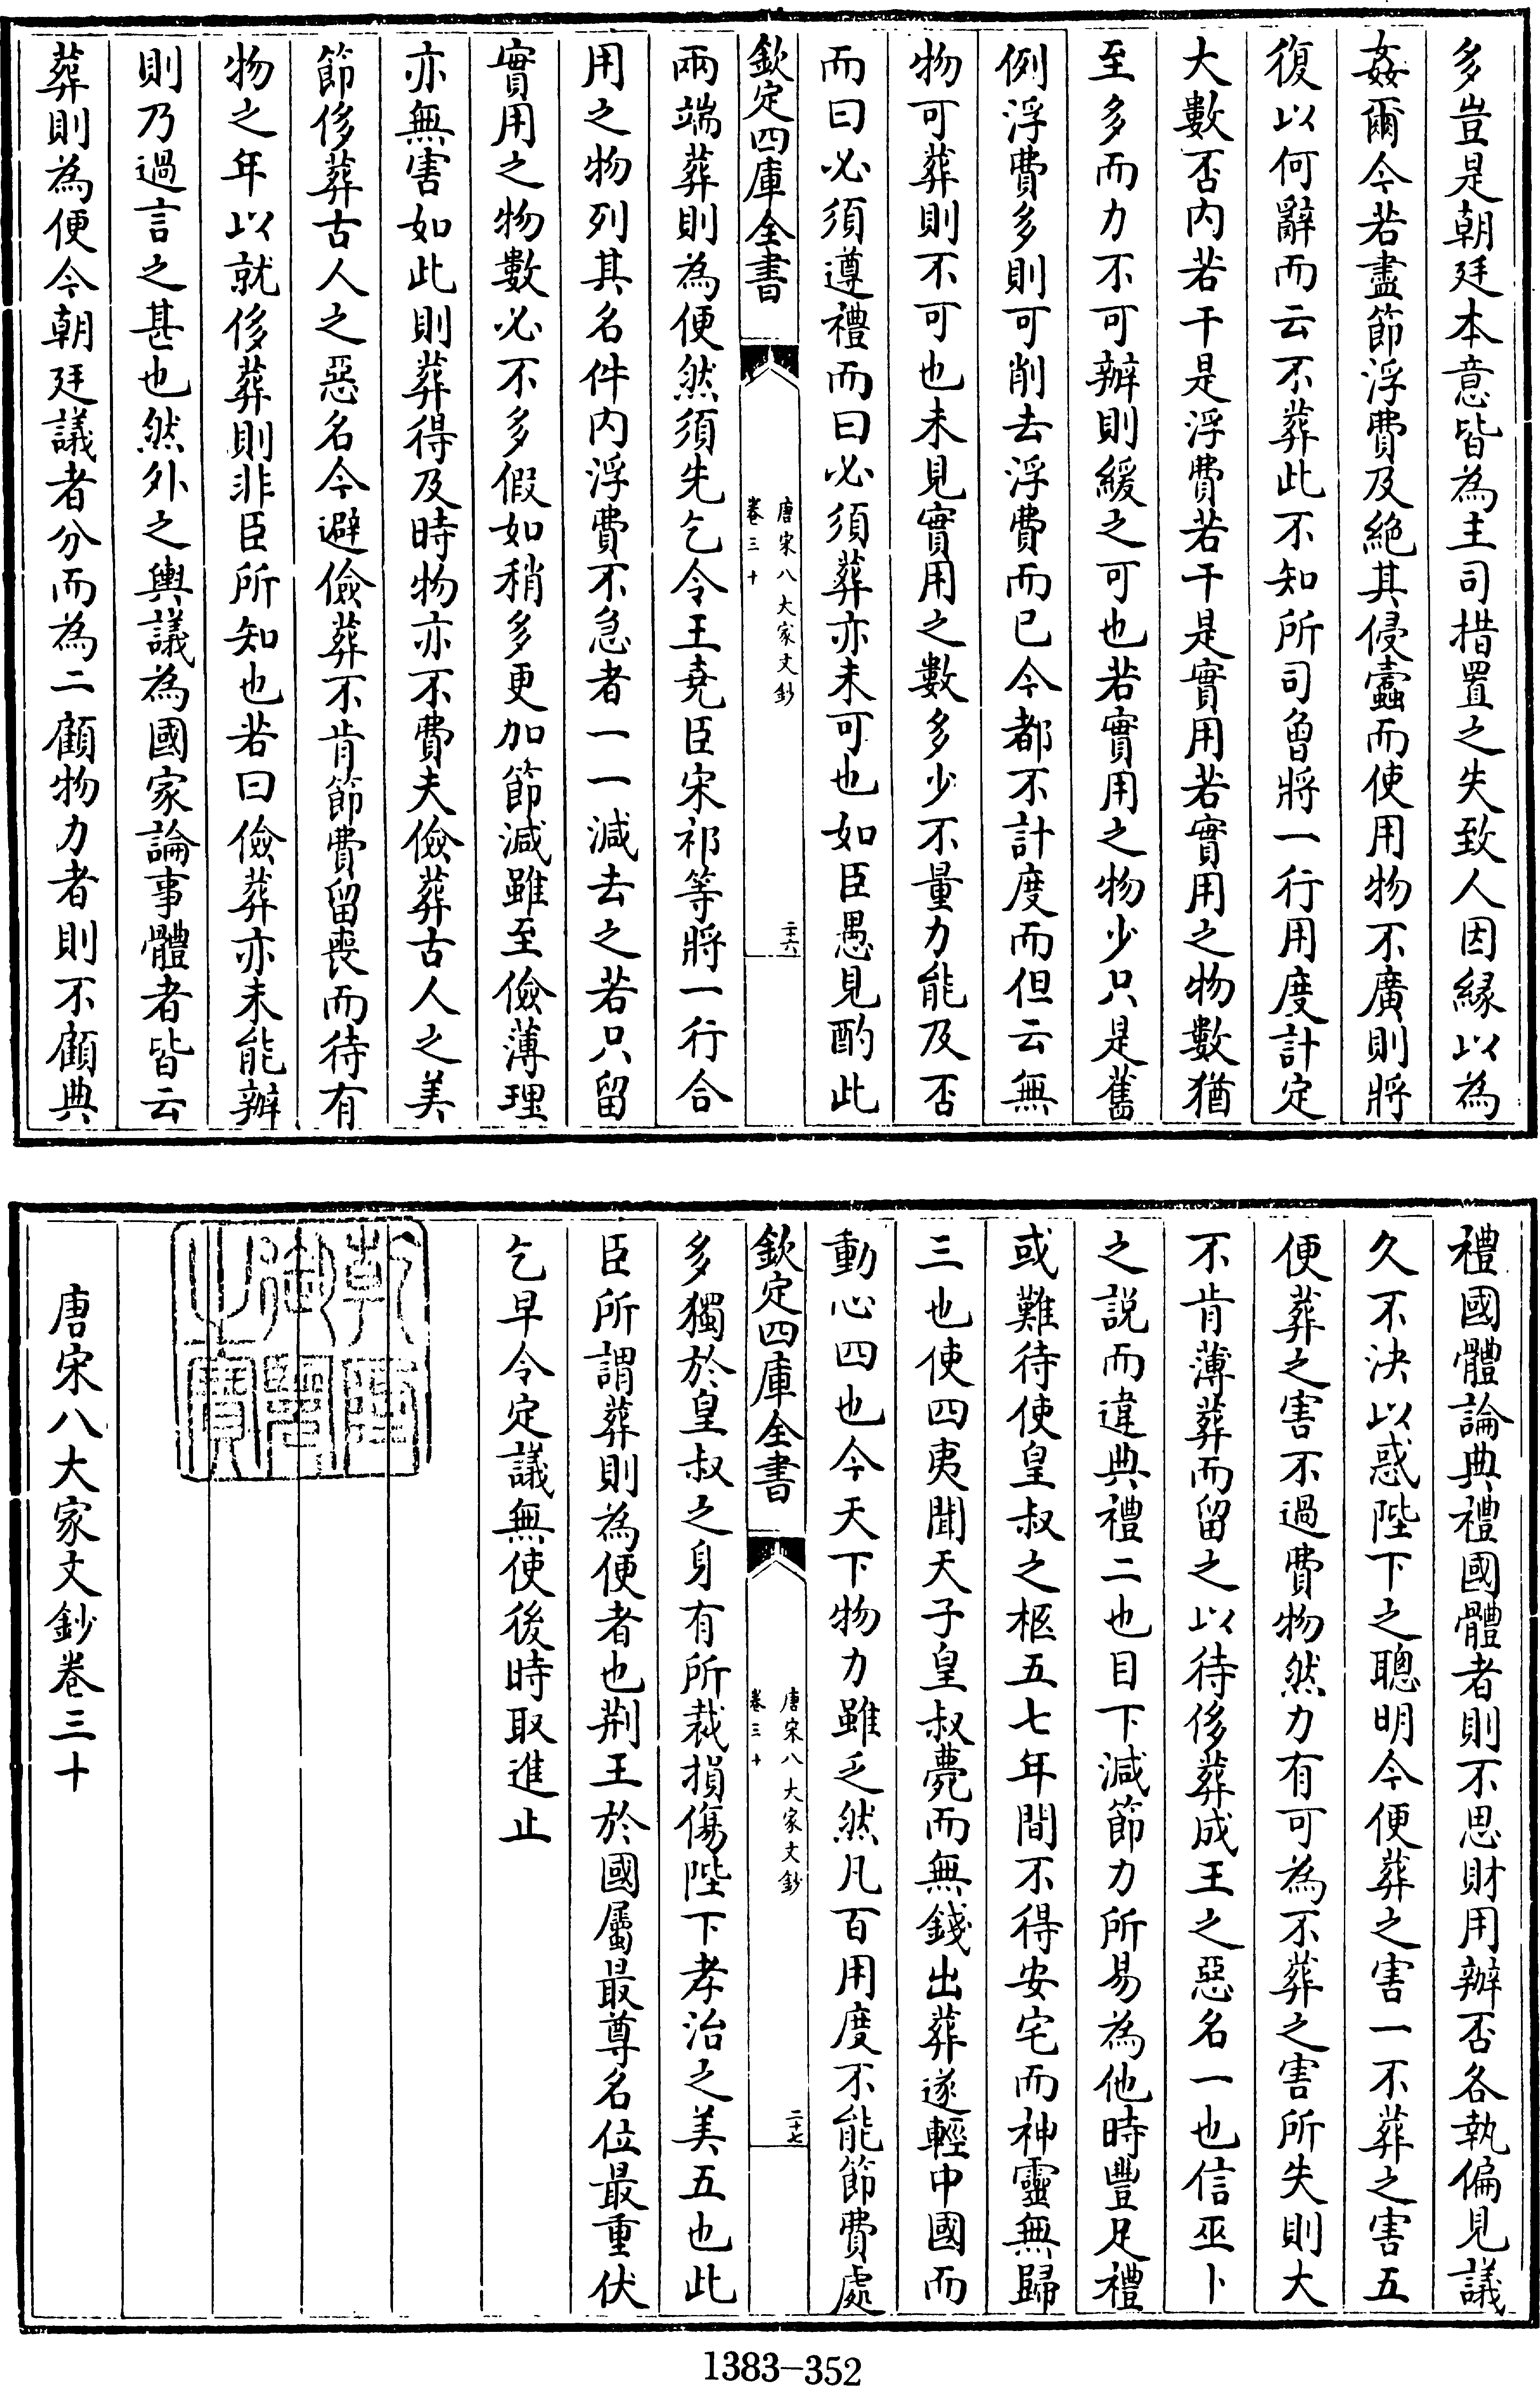 多豈是朝廷本意皆為主司措置之失致人因縁以為
姦爾今若盡節浮費及絶其侵蠧而使用物不廣則將
復以何辭而云不葬此不知所司曾將一行用度計定
大數否内若干是浮費若干是實用若實用之物數猶
至多而力不可辦則緩之可也若實用之物少只是舊
例浮費多則可削去浮費而已今都不計度而但云無
物可葬則不可也未見實用之數多少不量力能及否
而曰必須遵禮而曰必須葬亦未可也如臣愚見酌此
欽定四庫全書
唐宋八大家文鈔
卷三十
二十六
兩端葬則為便然須先乞令王堯臣宋祁等將一行合
用之物列其名件内浮費不急者一一減去之若只留
實用之物數必不多假如稍多更加節減雖至儉薄理
亦無害如此則葬得及時物亦不費夫儉葬古人之美
節侈葬古人之惡名今避儉葬不肯節費留喪而待有
物之年以就侈葬則非臣所知也若曰儉葬亦未能辦
則乃過言之甚也然外之輿議為國家論事體者皆云
葬則為便今朝廷議者分而為二顧物力者則不顧典
禮國體論典禮國體者則不思財用辦否各執偏見議
久不決以惑陛下之聰明今便葬之害一不葬之害五
便葬之害不過費物然力有可為不葬之害所失則大
不肯薄葬而留之以待侈葬成王之惡名一也信巫卜
之説而違典禮二也目下減節力所易為他時豐足禮
或難待使皇叔之柩五七年間不得安宅而神靈無歸
三也使四夷聞天子皇叔薨而無錢出葬遂輕中國而
動心四也今天下物力雖乏然凡百用度不能節費處
欽定四庫全書
唐宋八大家文鈔
卷三十
二十七
多獨於皇叔之身有所裁損傷陛下孝治之美五也此
臣所謂葬則為便者也荆王於國屬最尊名位最重伏
乞早令定議無使後時取進止
乾隆
御覽
之寶
唐宋八大家文鈔卷三十
1383-352